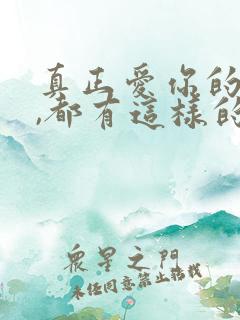 真正愛你的
,都有這樣的
眾星之門
未經同意禁止搭載